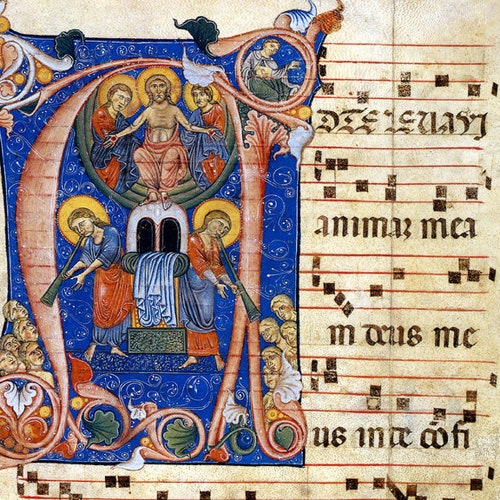 AD TE LEVAVI
animaz mea
m deus me
us in te cōfi